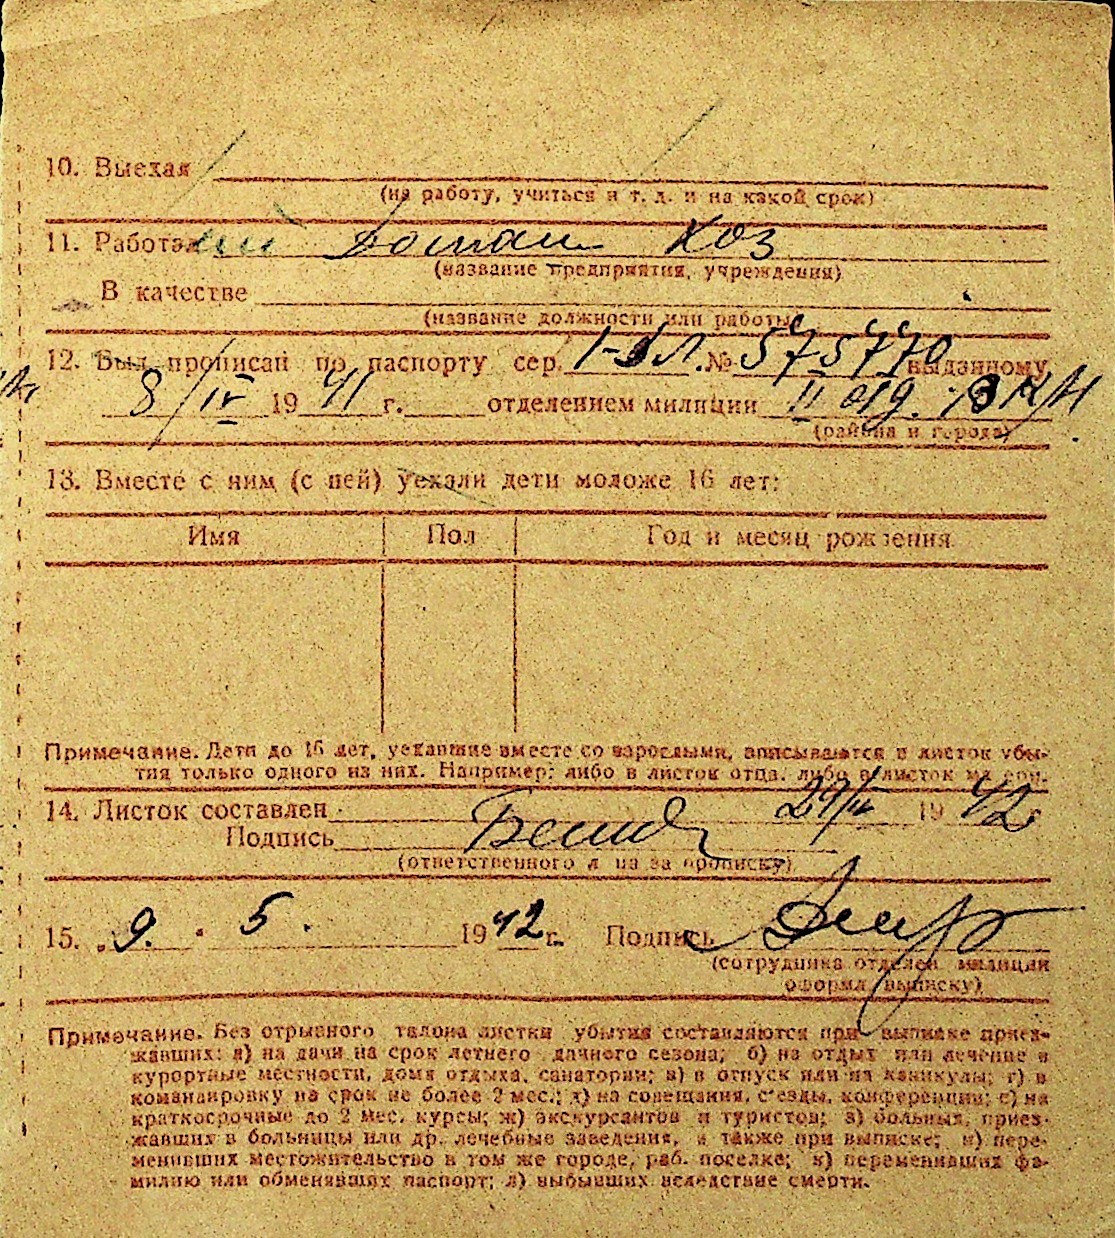 10. Выехал
(на работу, учиться и т. д. и на какой срок)
11. Работал Домаш Хоз
(название предприятия, учреждения)
В качестве
(название должности или работы)
12. Был прописан по паспорту сер. № 575770 выданному
8/IV 1941 г. отделением милиции II отд.
(района и города)
13. Вместе с ним (с ней) уехали дети моложе 16 лет:
Имя Пол Год и месяц рождения
Примечание. Дети до 16 лет, уехавшие вместе со взрослыми, вписываются в листок убы-
тия только одного из них. Например: либо в листок отца, либо в листок матери.
14. Листок составлен 29/IV 1942
Подпись
(ответственного лица за прописку)
15. 9. 5. 1942 г. Подпись
(сотрудника отделен. милиции
оформл. выписку)
Примечание. Без отрывного талона листки убытия составляются при выписке приез-
жавших: а) на дачи на срок летнего дачного сезона; б) на отдых или лечение в
курортные местности, дома отдыха, санатории; в) в отпуск или на каникулы; г) в
командировку на срок не более 2 мес.; д) на совещания, съезды, конференции; е) на
краткосрочные до 2 мес. курсы; ж) экскурсантов и туристов; з) больных, приез-
жавших в больницы или др. лечебные заведения, а также при выписке; и) пере-
менивших местожительство в том же городе, раб. поселке; к) переменивших фа-
милию или обменявших паспорт; л) выбывших вследствие смерти.